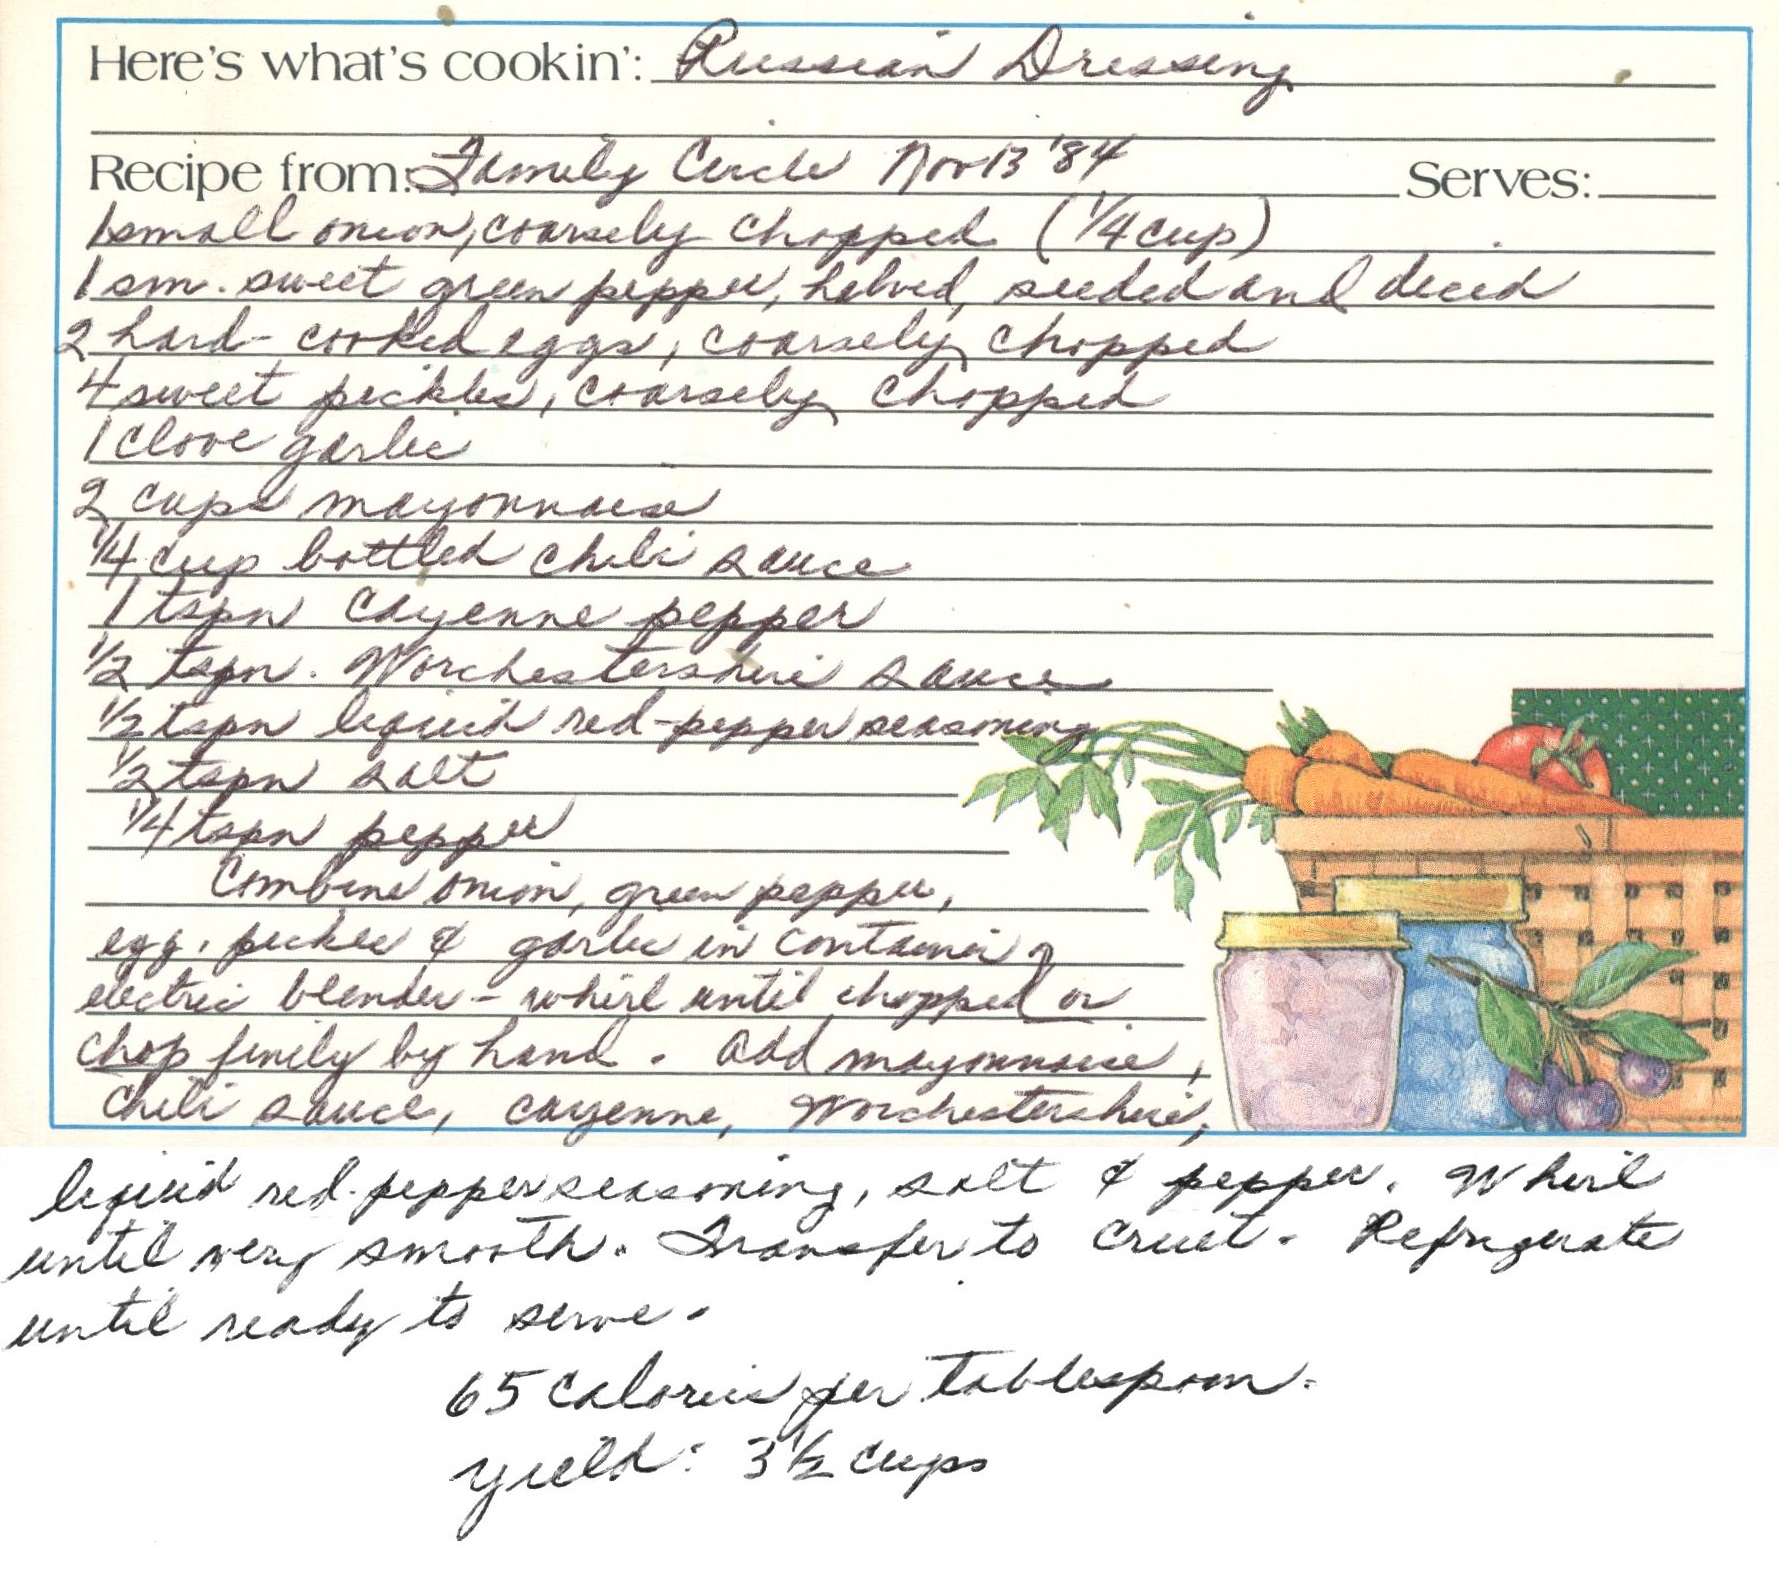 Here's what's cookin': Russian Dressing
Recipe from: Family Circle Nov 13 '84 Serves:
1 small onion, coarsely chopped (1/4 cup)
1 sm. sweet green pepper, halved, seeded and diced
2 hard-cooked eggs, coarsely chopped
4 sweet pickles, coarsely chopped
1 clove garlic
2 cups mayonnaise
1/4 cup bottled chili sauce
1 tspn cayenne pepper
1/2 tspn. Worchestershire sauce
1/2 tspn liquid red-pepper seasoning
1/2 tspn salt
1/4 tspn pepper
Combine onion, green pepper,
egg, pickle & garlic in container of
electric blender - whirl until chopped or
chop finely by hand. Add mayonnaise,
chili sauce, cayenne, Worchestershire,
liquid red-pepper seasoning, salt & pepper. Whirl
until very smooth. Transfer to cruet. Refrigerate
until ready to serve.
65 calories per tablespoon.
yield: 3 1/2 cups